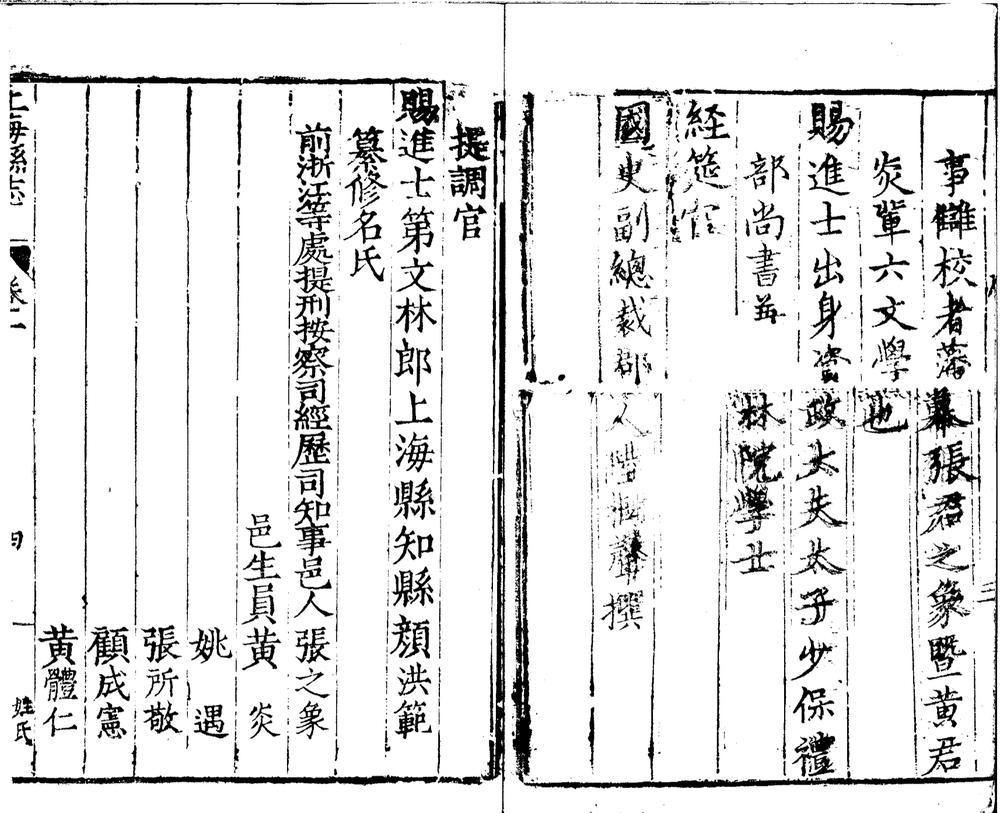 事讎校者藩幕張君之象暨黃君
炎輩六文學也
賜進士出身資政大夫太子少保禮
部尚書林院學士
経筵官
國史副總裁郡人陸樹聲撰
提調官
賜進士第文林郎上海縣知縣顏洪範
纂修名氏
前浙江等處提刑按察司經歷司知事邑人張之象
邑生員黃炎
姚遇
張所敬
顧成憲
黃體仁
上海縣志 姓氏